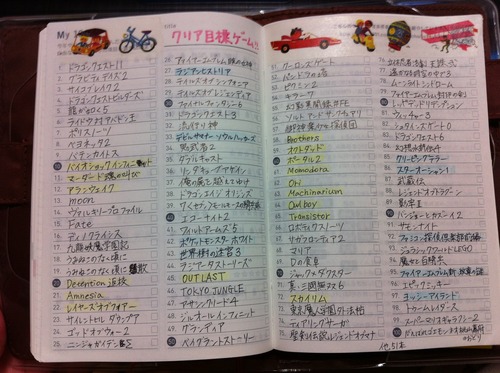 My
title
クリア目標ゲーム!!
1 ドラゴンクエスト11
2 グラビティデイズ2
3 サイコブレイク2
4 ドラゴンクエストビルダーズ
5 龍が如く5
6 ライドウ対アバドン王
7 ポリスノーツ
8 ベヨネッタ2
9 バテンカイトス
10 バイオショックインフィニット
11 マーダード 魂の叫び
12 アランウェイク
13 moon
14 ヴァルキリープロファイル
15 Fate
17 九龍妖魔學園記
18 うみねこのなく頃に
19 うみねこのなく頃に散
20 Detention 返校
21 Amnesia
22 レイヤーズオブフィアー
23 サイレントヒル ダウンプア
24 ゴッドオブウォー2
25 ニンジャガイデンΣ
26 ファイアーエムブレム
27 ラジアントヒストリア
28 テイルズオブシンフォニア
29 テイルズオブレジェンディア
30 ファイナルファンタジー6
31 ドラゴンクエスト3
32 流行り神
33 デビルサマナー ソウルハッカーズ
34 鬼武者2
35 ダラルチャスト
36 リンダキューブアゲイン
37 俺の屍を越えてゆけ
38 ドラゴンエイジ オリジンズ
40 エコーナイト2
41 ワイルドアームズ5
42 ポケットモンスターホワイト
43 世界樹の迷宮3
44 ラジアータストーリーズ
45 OUTLAST
46 TOKYO JUNGLE
47 アサシンクリード4
48 ソルオールインフィニット
49 グランディア
50 ベイグラントストーリー
51 クーロンズゲート
52 パンドラの塔
53 ピクミン2
54 キラー7
55 幻影異聞録#FE
56 ソルトアンドサンクチュアリ
57 御神楽少女探偵団
58 Brothers
59 オクトダッド
60 ポータル2
61 Momodora
62 Ori
63 Machinarium
64 Owlboy
65 Transistor
66 ロボティクスノーツ
67 サガフロンティア2
68 マリア
69 Dの食卓
70 ジャック×ダクスター
71 真・三國無双6
72 スカイリム
73 東京魔人學園外法帖
74 ティアリングサーガ
75 聖剣伝説レジェンドオブマナ
78 ムーンライトシンドローム
80 レッドデッドリデンプション
81 ウィッチャー3
82 シュタインズゲート0
83 ドラゴンクエスト
84 幻想水滸伝4
85 クリーピングテラー
86 スターオーシャン1
87 武蔵伝
88 レジェンドオブドラグーン
89 影牢II
90 バンジョーとカズーイ2
91 サモンナイト
92 ファミコン探偵倶楽部前編
93 ジュラシックワールドLEGO
94 魔女と百騎兵
95 ファイアーエムブレム新・紋章の謎
96 エピックミッキー
97 ヨッシーアイランド
98 トゥームレイダース
99 スーパーマリオギャラクシー2
100 がんばれゴエモンネオ桃山幕府のおどり
他,51本